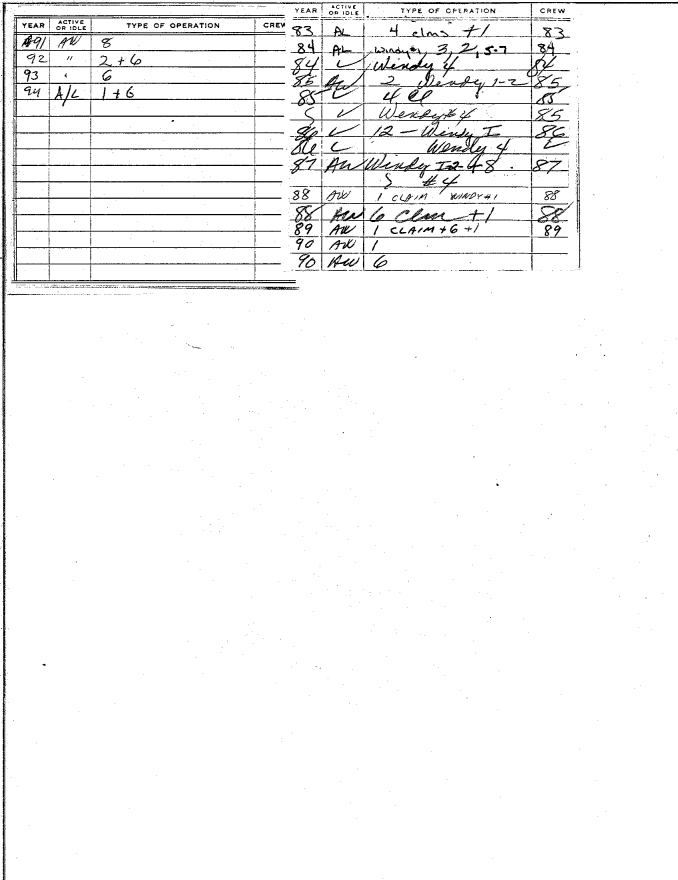 YEAR ACTIVE OR IDLE TYPE OF OPERATION CREW
91 AW 8
92 " 2 + 6
93 " 6
94 A/L 1 + 6
YEAR ACTIVE OR IDLE TYPE OF OPERATION CREW
83 AL 4 clms +1 83
84 AL Windy 3, 2, 5-7 84
84 Windy 4 84
85 AW 2 Wendy 1-2 85
85 4 Cl 85
Wendy #4 85
86 12 - Windy I 86
86 Wendy 4
87 AW Windy 8. 87
#4
88 AW 1 CLAIM WINDY #1 88
88 AW 6 Clm +1 88
89 AW 1 CLAIM + 6 +1 89
90 AW 1
90 AW 6